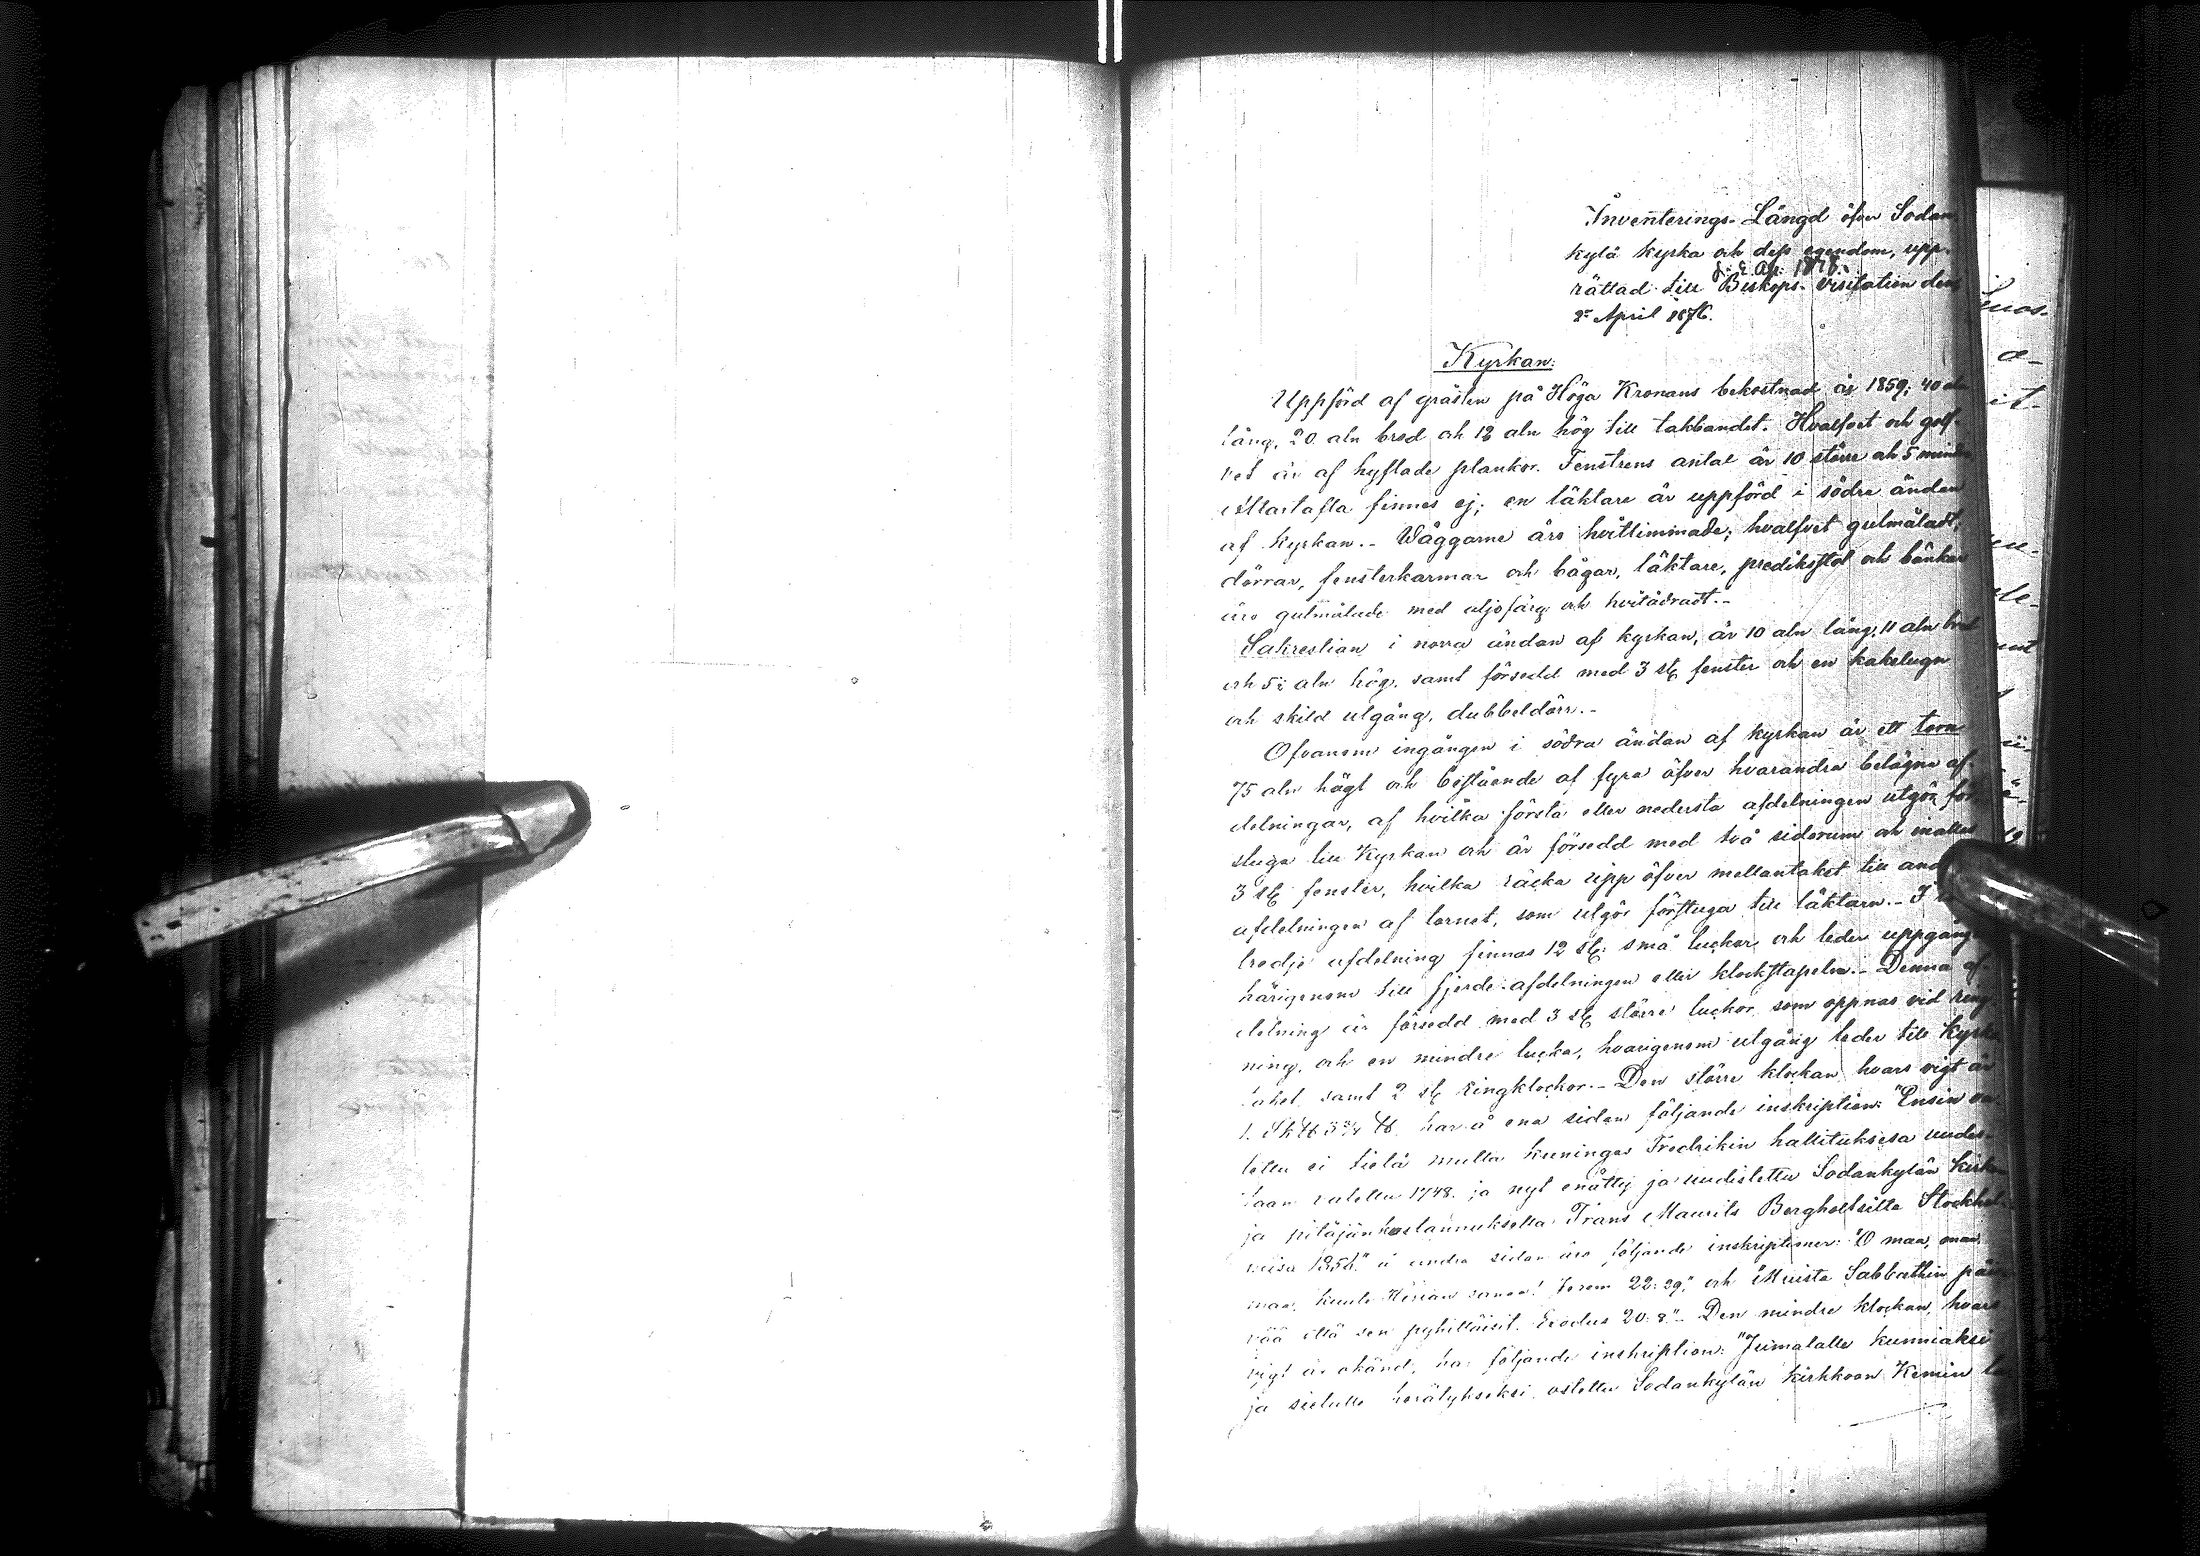 Inventerings-Längd öfver Sodan
kylä kyrka och dess egendom, upp-
rättad till Biskops-visitation den
2 April 1876.
Kyrkan:
Uppförd af gråsten på Höga Kronans bekostnad år 1859; 40 aln
lång, 20 aln bred och 12 aln hög till takbandet. Hvalfvet och golf-
vet är af hyflade plankor. Fenstrens antal är 10 större och 5 mindre
Altartafla finnes ej; en läktare är uppförd i södra ändan
af kyrkan.- Wäggarne äro hvitlimmade; hvalfvet gulmåladt;
dörrar, fensterkarmar och bågar, läktare, predikstol och bänkar
äro gulmålade med oljofärg och hvitådradt.-
Sakrestian i norra ändan af kyrkan, är 10 aln lång, 11 aln bred
och 5½ aln hög, samt försedd med 3 st fenster och en kakelugn
och skild utgång, dubbeldörr.-
Ofvanom ingången i södra ändan af kyrkan är ett torn
75 aln högt och bestående af fyra öfver hvarandra belägna af-
delningar, af hvilka första eller nedersta afdelningen utgör för-
stuga till Kyrkan och är försedd med två siderum och inalles
3 st fenster, hvilka räcka upp öfver mellantaket till and
afdelningen af tornet, som utgör förstuga till läktarn.- I
tredje afdelning finnas 12 st: små luckor, och leder uppgång
härigenom till fjerde-afdelningen eller klockstapeln.- Denna af-
delning är försedd med 3 st större luckor, som öppnas vid ring-
ning, och en mindre lucka, hvarigenom utgång leder till kyrk
taket, samt 2 st ringklockor.- Den större klockan, hvars vigt är
1. Sk℔ 3¾ ℔, har å ena sidan följande inskription: "Ensin
tettu ei tielä mutta kuningas Fredrikin hallituksesa uudes-
taan valettu 1748. ja nyt enätty ja uudistettu Sodankylän kirko
ja pitäjän kostannuksella Frans Maurits Bergholtsilta Stockhol-
misa 1854." å andra sidan äro följande inskriptioner: "O maa, maa,
maa, kuule Herran sanaa! Jerem 22: 29," och "Muista Sabbathin päi-
vää että sen pyhittäisit. Exodus 20:8".- Den mindre klockan, hvars
vigt är okänd, har följande inskription: "Jumalalle kunniaksi
ja sieluille herätykseksi ostettu Sodankylän kirkkoon Kemin